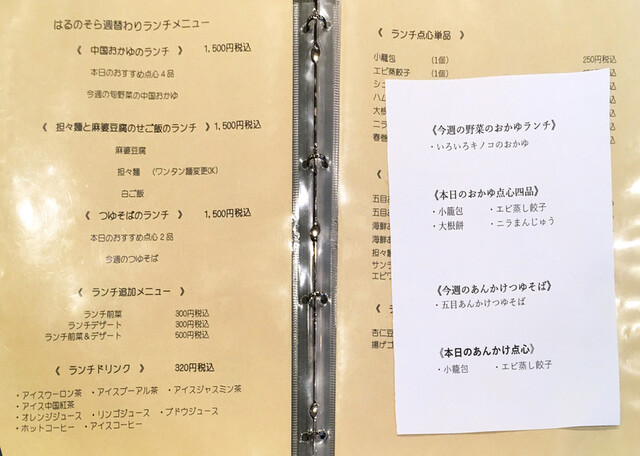 はるのそら週替わりランチメニュー
《 中国おかゆのランチ 》 1,500円税込
本日のおすすめ点心4品
今週の旬野菜の中国おかゆ
《 担々麺と麻婆豆腐のせご飯のランチ 》1,500円税込
麻婆豆腐
担々麺 (ワンタン麺変更OK)
白ご飯
《 つゆそばのランチ 》 1,500円税込
本日のおすすめ点心2品
今週のつゆそば
《 ランチ追加メニュー 》
ランチ前菜 300円税込
ランチデザート 300円税込
ランチ前菜&デザート 500円税込
《 ランチドリンク 》 320円税込
・アイスウーロン茶 ・アイスプーアル茶 ・アイスジャスミン茶
・アイス中国紅茶
・オレンジジュース ・リンゴジュース ・ブドウジュース
・ホットコーヒー ・アイスコーヒー
《 ランチ点心単品 》
小籠包 (1個) 250円税込
エビ蒸餃子 (1個)
シュ
ハム
大根
ニラ
春巻
《
五目あ
五目
海鮮
海鮮あ
担々麺
サンラ
エビワ
《 ラ
杏仁豆
揚げゴ
《今週の野菜のおかゆランチ》
・いろいろキノコのおかゆ
《本日のおかゆ点心四品》
・小籠包 ・エビ蒸し餃子
・大根餅 ・ニラまんじゅう
《今週のあんかけつゆそば》
・五目あんかけつゆそば
《本日のあんかけ点心》
・小籠包 ・エビ蒸し餃子